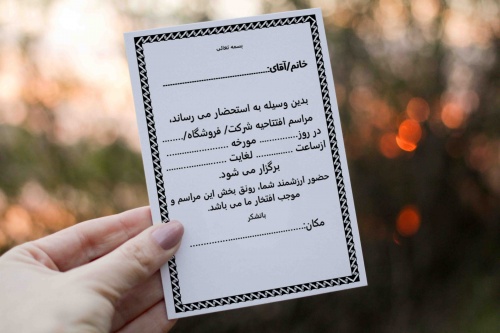 بسمه تعالی
خانم/آقای:................................
بدین وسیله به استحضار می رساند،
مراسم افتتاحیه شرکت/ فروشگاه/.......
در روز............. مورخه ....................
ازساعت ............. لغایت ....................
برگزار می شود.
حضور ارزشمند شما، رونق بخش این مراسم و
موجب افتخار ما می باشد.
باتشکر
مکان:....................................